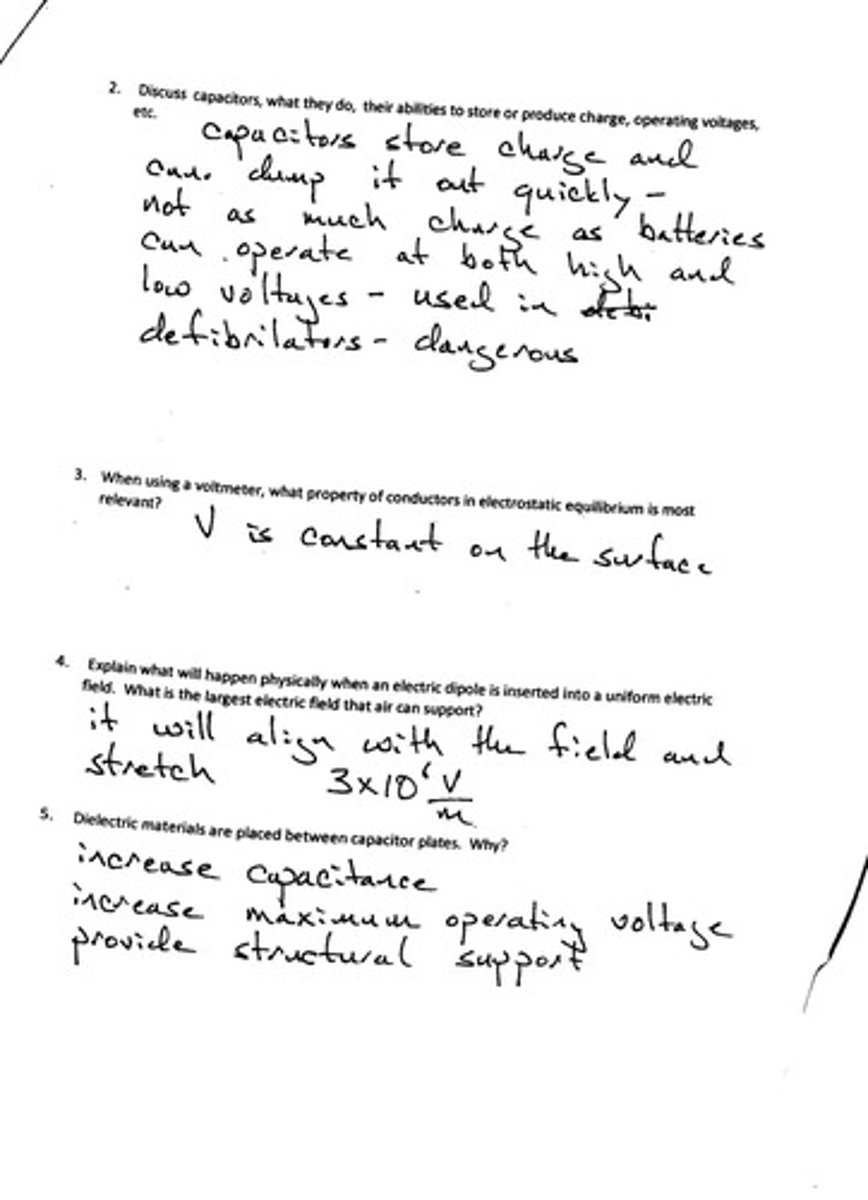 2. Discuss capacitors, what they do, their abilities to store or produce charge, operating voltages,
etc.
capacitors store charge and
can dump it out quickly -
not as much charge as batteries
can operate at both high and
low voltages - used in debi
defibrilators - dangerous
3. When using a voltmeter, what property of conductors in electrostatic equilibrium is most
relevant?
V is constant on the surface
4. Explain what will happen physically when an electric dipole is inserted into a uniform electric
field. What is the largest electric field that air can support?
it will align with the field and
stretch 3x10⁶ V/m
5. Dielectric materials are placed between capacitor plates. Why?
increase capacitance
increase maximum operating voltage
provide structural support